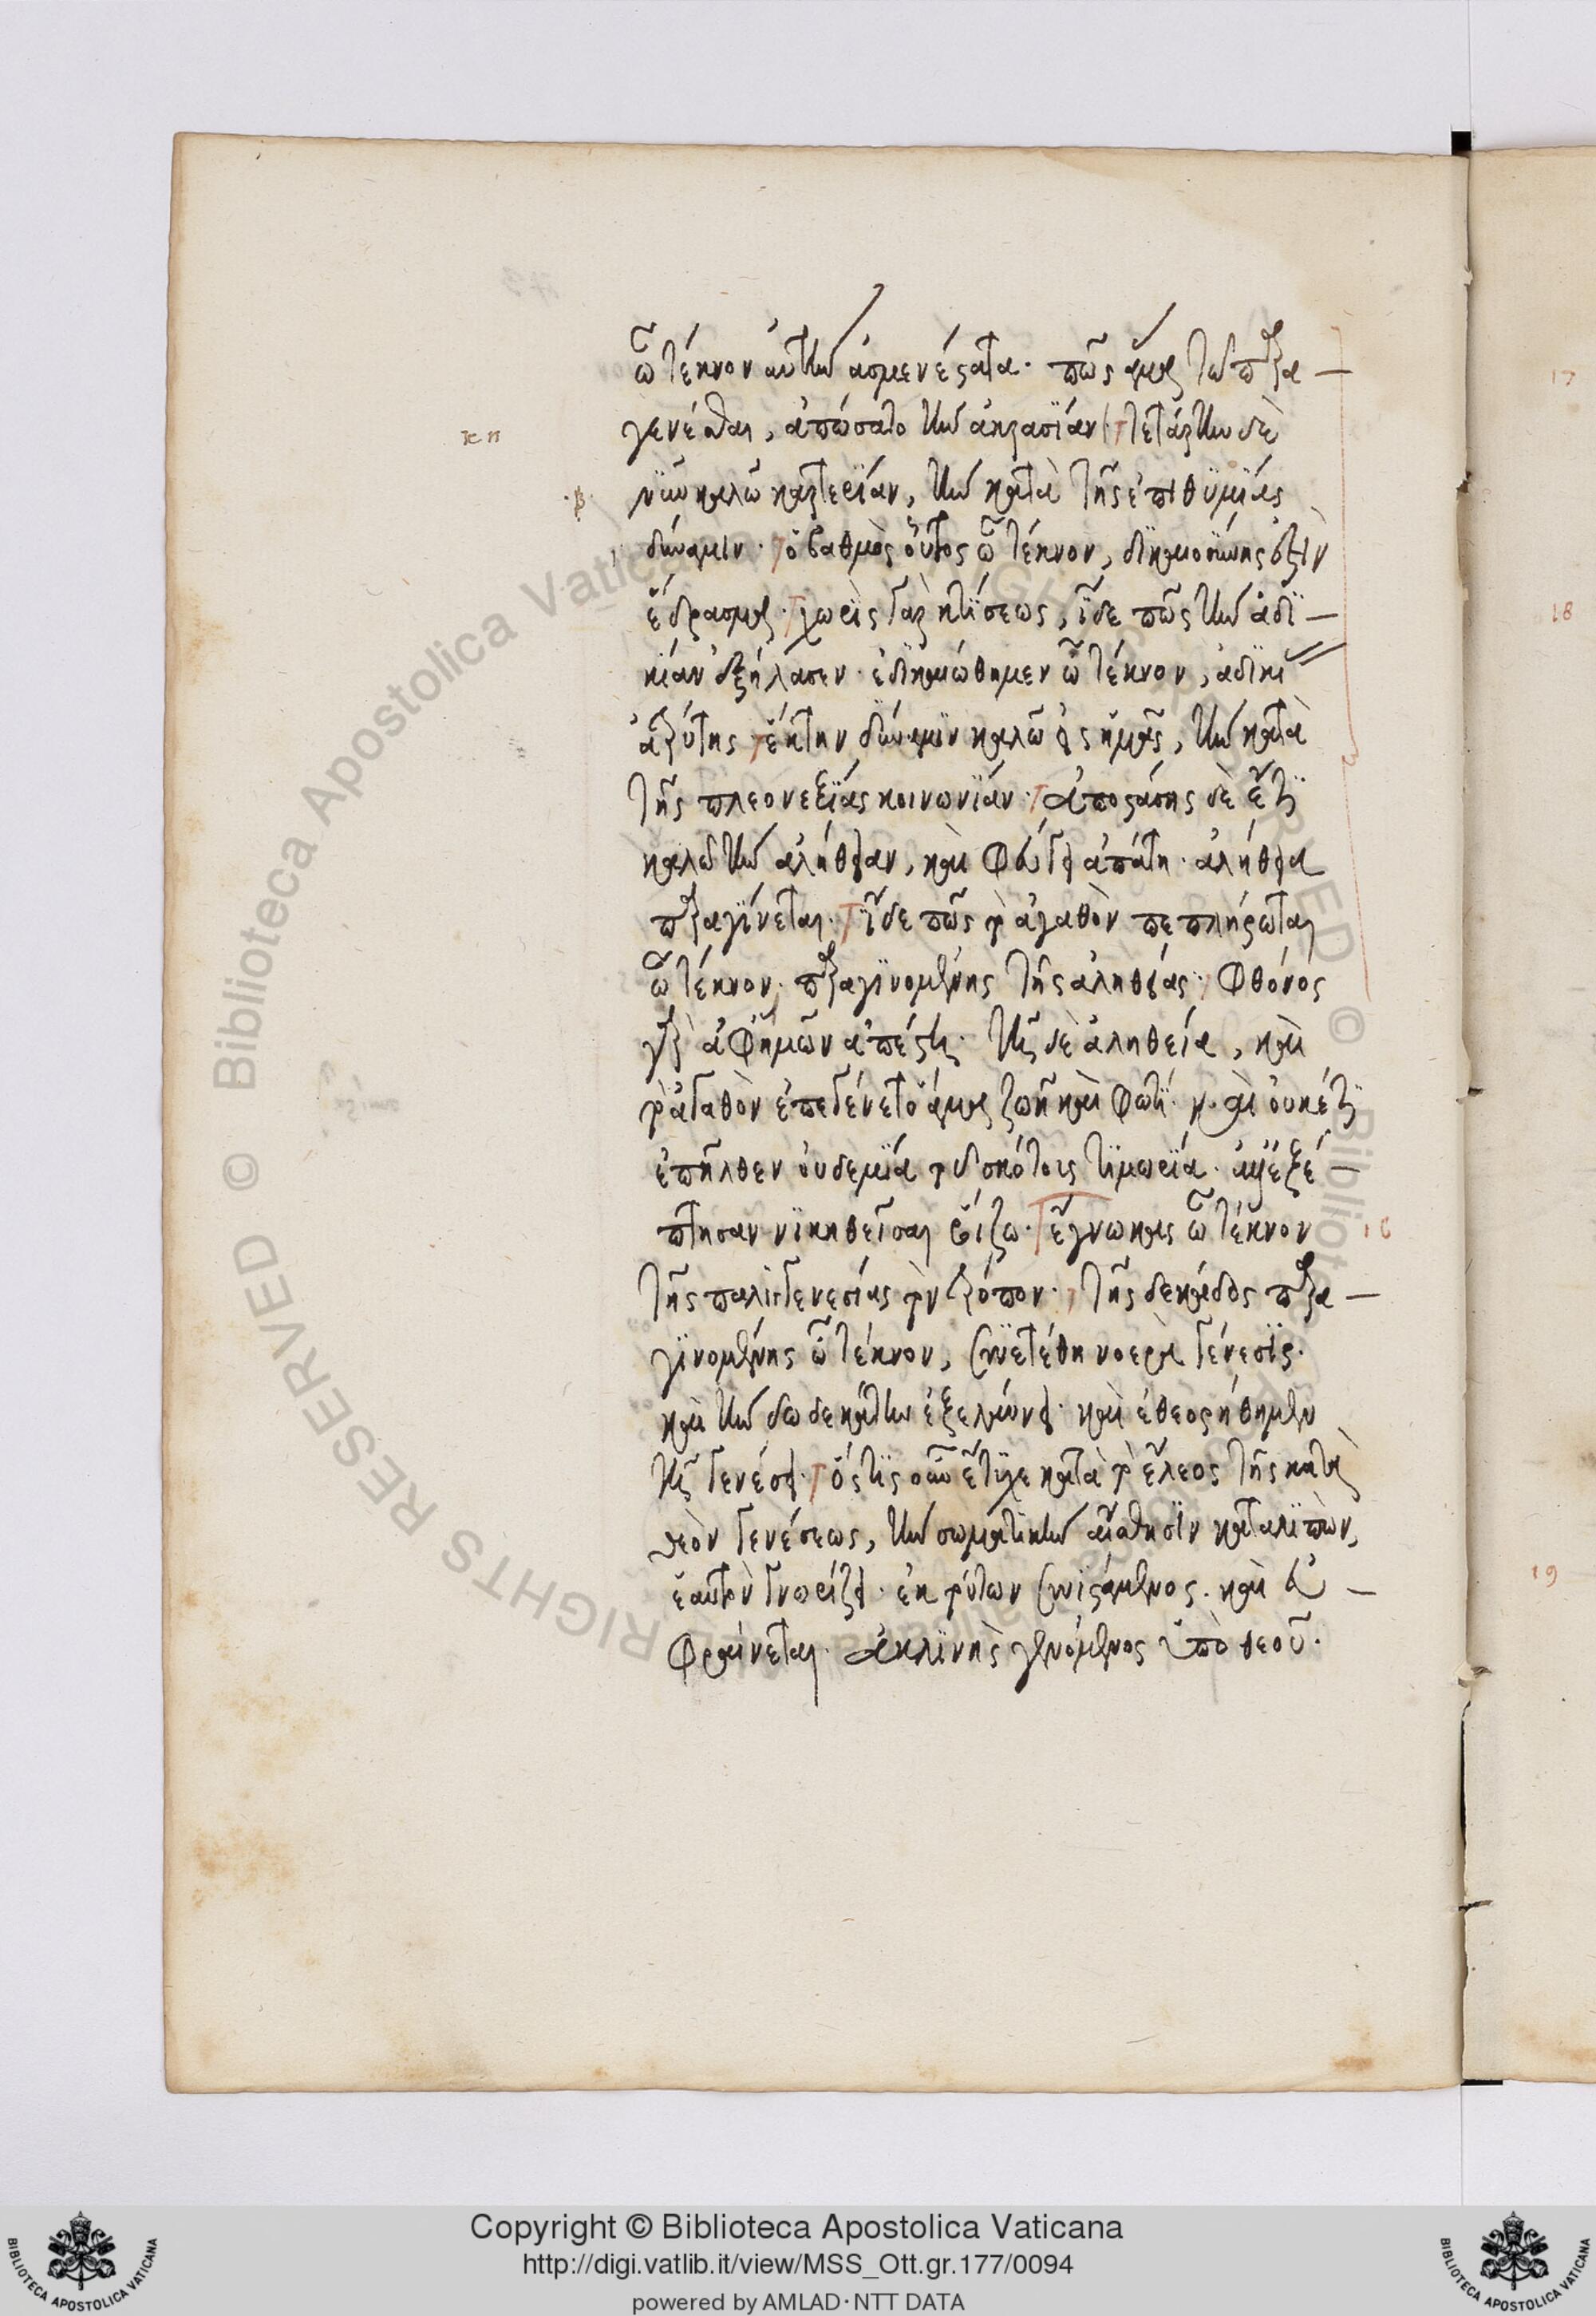 ὦ τέκνον αὐτὴν ἀσμενέστατα. πῶς ἅμα τῶ παρα
γενέσθαι, ἀπώσατο τὴν ἀκρασΐαν. τετάρτην δὲ
νῦν καλῶ καρτερΐαν, τὴν κατὰ τῆς ἐπιθϋμΐας
δύναμιν. ὁ βαθμὸς οὗτος ὦ τέκνον, δϊκαιοσύνης ἐστὶν
ἕδρασμα. χωρὶς γὰρ κτΐσεως, ἴδε πῶς τὴν ἀδϊ
κίαν ἐξήλασεν. ἐδϊκαιώθημεν ὦ τέκνον, ἀδϊκί
ας ἀούσης. ἕκτην δύναμϊν καλῶ εἰς ἡμᾶς, τὴν κατὰ
τῆς πλεονεξΐας κοινωνΐαν. ἀποστάσης δὲ ἔτϊ
καλῶ τὴν ἀλήθειαν, καὶ φεύγει ἀπάτη. ἀλήθεια
παραγΐνεται. ἴδε πῶς τὸ ἀγαθὸν πεπλήρωται
ὦ τέκνον. παραγϊνομένης τῆς ἀληθείας. φθόνος
γὰρ ἀφ' ἡμῶν ἀπέστη. τῆ δὲ ἀληθεία, καὶ
τὸ ἀγαθὸν ἐπεγένετο ἅμα ζωῆ καὶ φωτΐ. καὶ οὐκέτϊ
ἐπῆλθεν οὐδεμΐα τοῦ σκότους τϊμωρΐα. ἀλλ' ἐξέ
πτησαν νϊκηθεῖσαι ῥοίζω. ἔγνωκας ὦ τέκνον
τῆς παλιγγενεσίας τὸν τρόπον. τῆς δεκάδος παρα
γϊνομένης ὦ τέκνον, συνετέθη νοερὰ γένεσϊς.
καὶ τὴν δωδεκάτην ἐξελαύνει. καὶ ἐθεορήθημεν
τῆ γενέσει. ὅστϊς οὖν ἔτϋχε κατὰ τὸ ἔλεος τῆς κατὰ
θεὸν γενέσεως, τὴν σωματϊκὴν αἴσθησϊν καταλϊπὼν,
ἑαυτὸν γνωρίζει. ἐκ τούτων συνϊστάμενος. καὶ εὐ
φραίνεται. ἀκλϊνὴς γενόμενος ὑπὸ θεοῦ.
17
18
16
19
Copyright © Biblioteca Apostolica Vaticana
http://digi.vatlib.it/view/MSS_Ott.gr.177/0094
powered by AMLAD·NTT DATA